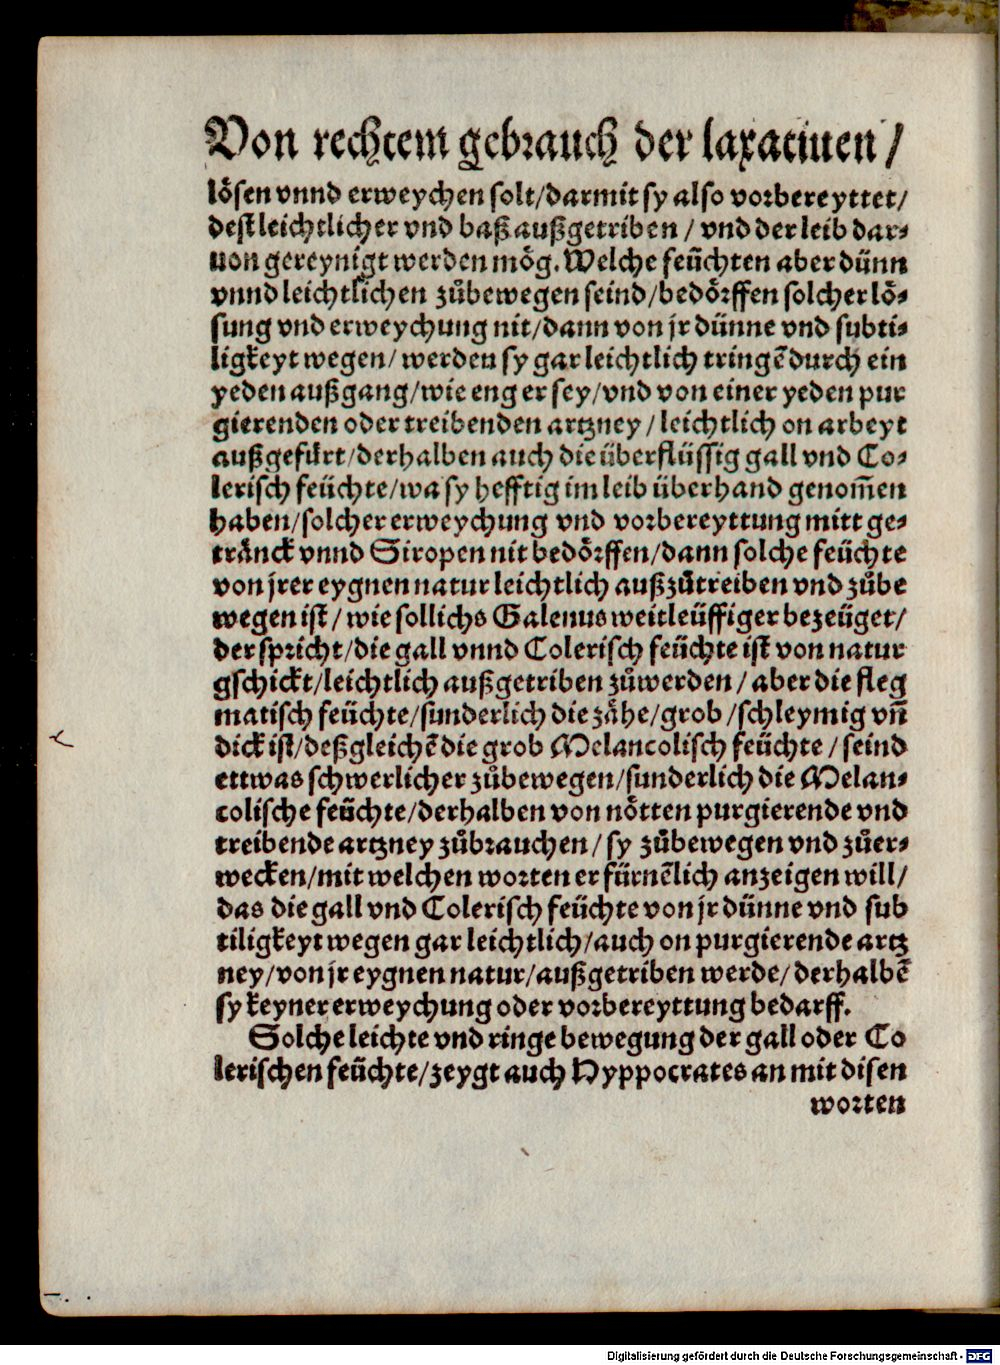 Von rechtem gebrauch der laxatiuen /
lösen vnnd erweychen solt/darmit sy also vorbereyttet/
dest leichtlicher vnd baß außgetriben / vnd der leib dar⸗
uon gereynigt werden mög. Welche feüchten aber dünn
vnnd leichtlichen zůbewegen seind/bedörffen solcher lö⸗
sung vnd erweychung nit/dann von jr dünne vnd subti⸗
ligkeyt wegen/ werden sy gar leichtlich tringẽ durch ein
yeden außgang/wie eng er sey/vnd von einer yeden pur
gierenden oder treibenden artzney /leichtlich on arbeyt
außgefürt/derhalben auch die überflüssig gall vnd Co⸗
lerisch feüchte/wa sy hefftig im leib überhand genom̃en
haben/solcher erweychung vnd vorbereyttung mitt ge⸗
tränck vnnd Siropen nit bedörffen/dann solche feüchte
von jrer eygnen natur leichtlich außzůtreiben vnd zůbe
wegen ist/ wie sollichs Galenus weitleüffiger bezeüget/
der spricht/die gall vnnd Colerisch feüchte ist von natur
gschickt/leichtlich außgetriben zůwerden/ aber die fleg
matisch feüchte/sunderlich die zähe/grob /schleymig vñ
dick ist/deßgleichẽ die grob Melancolisch feüchte / seind
ettwas schwerlicher zůbewegen/sunderlich die Melan⸗
colische feüchte/derhalben von nötten purgierende vnd
treibende artzney zůbrauchen/ sy zůbewegen vnd zůer⸗
wecken/mit welchen worten er fürnẽlich anzeigen will/
das die gall vnd Colerisch feüchte von jr dünne vnd sub
tiligkeyt wegen gar leichtlich/auch on purgierende artz
ney/von jr eygnen natur/außgetriben werde/ derhalbẽ
sy keyner erweychung oder vorbereyttung bedarff.
Solche leichte vnd ringe bewegung der gall oder Co
lerischen feüchte/zeygt auch Hyppocrates an mit disen
worten
Digitalisierung gefördert durch die Deutsche Forschungsgemeinschaft - DFG